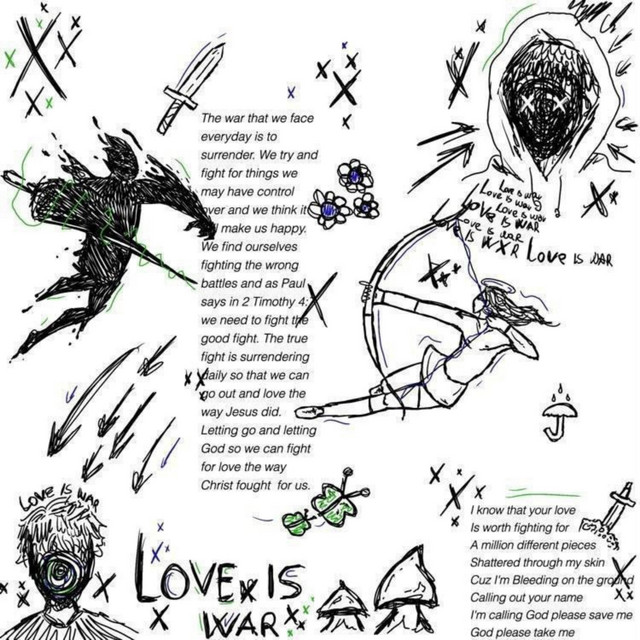 The war that we face
everyday is to
surrender. We try and
fight for things we
may have control
over and we think it
make us happy.
We find ourselves
fighting the wrong
battles and as Paul
says in 2 Timothy 4:
we need to fight the
good fight. The true
fight is surrendering
daily so that we can
go out and love the
way Jesus did.
Letting go and letting
God so we can fight
for love the way
Christ fought for us.
Love is way
Love is way
Love is way
LOVE IS WAR
Love is war
IS WXR LOVE IS WAR
LOVE IS WAR
LOVE IS
WAR
I know that your love
Is worth fighting for
A million different pieces
Shattered through my skin
Cuz I'm Bleeding on the ground
Calling out your name
I'm calling God please save me
God please take me